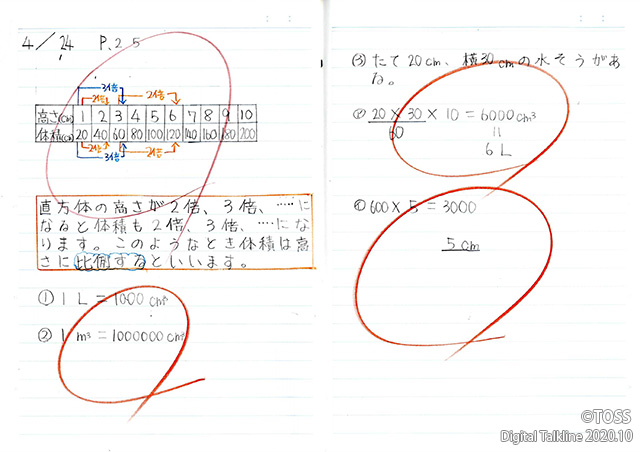 4/24 P.25
3倍
2倍 2倍
高さ(cm) 1 2 3 4 5 6 7 8 9 10
体積(cm³) 20 40 60 80 100 120 140 160 180 200
2倍 2倍
3倍
直方体の高さが2倍、3倍、……に
なると体積も2倍、3倍、……にな
ります。このようなとき体積は高
さに比例するといいます。
① 1 L = 1000 cm³
② 1 m³ = 1000000 cm³
(3) たて20cm、横30cmの水そうがあ
る。
20 × 30 × 10 = 6000cm³
60
11
6 L
600 × 5 = 3000
5 cm
©TOSS
Digital Talkline 2020.10